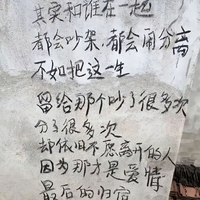 其实和谁在一起
都会吵架,都会闹分离
不如把这一生
留给那个吵了很多次
分了很多次
却依旧不愿离开的人
因为那才是爱情
最后的归宿